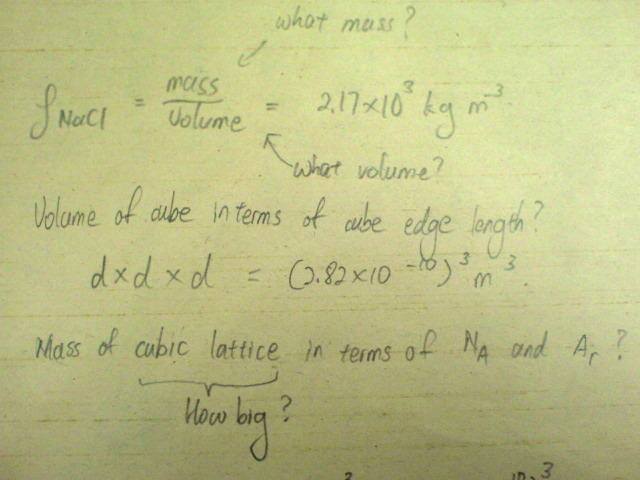 what mass?
ρNaCl = mass/volume = 2.17×10³ kg m⁻³
what volume?
Volume of cube in terms of cube edge length?
d×d×d = (2.82×10⁻¹⁰)³ m³.
Mass of cubic lattice in terms of NA and Ar?
How big?